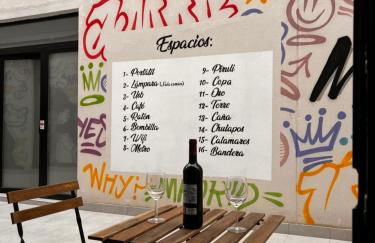 Espacios:
1- Portátil
2- Lámpara (Sala común)
3- Usb
4- Café
5- Ratón
6- Bombilla
7- Wifi
8- Metro
9- Piruli
10- Copa
11- Oso
12- Torre
13- Caña
14- Chulapos
15- Calamares
16- Bandera
YES
WHY?
MADRID